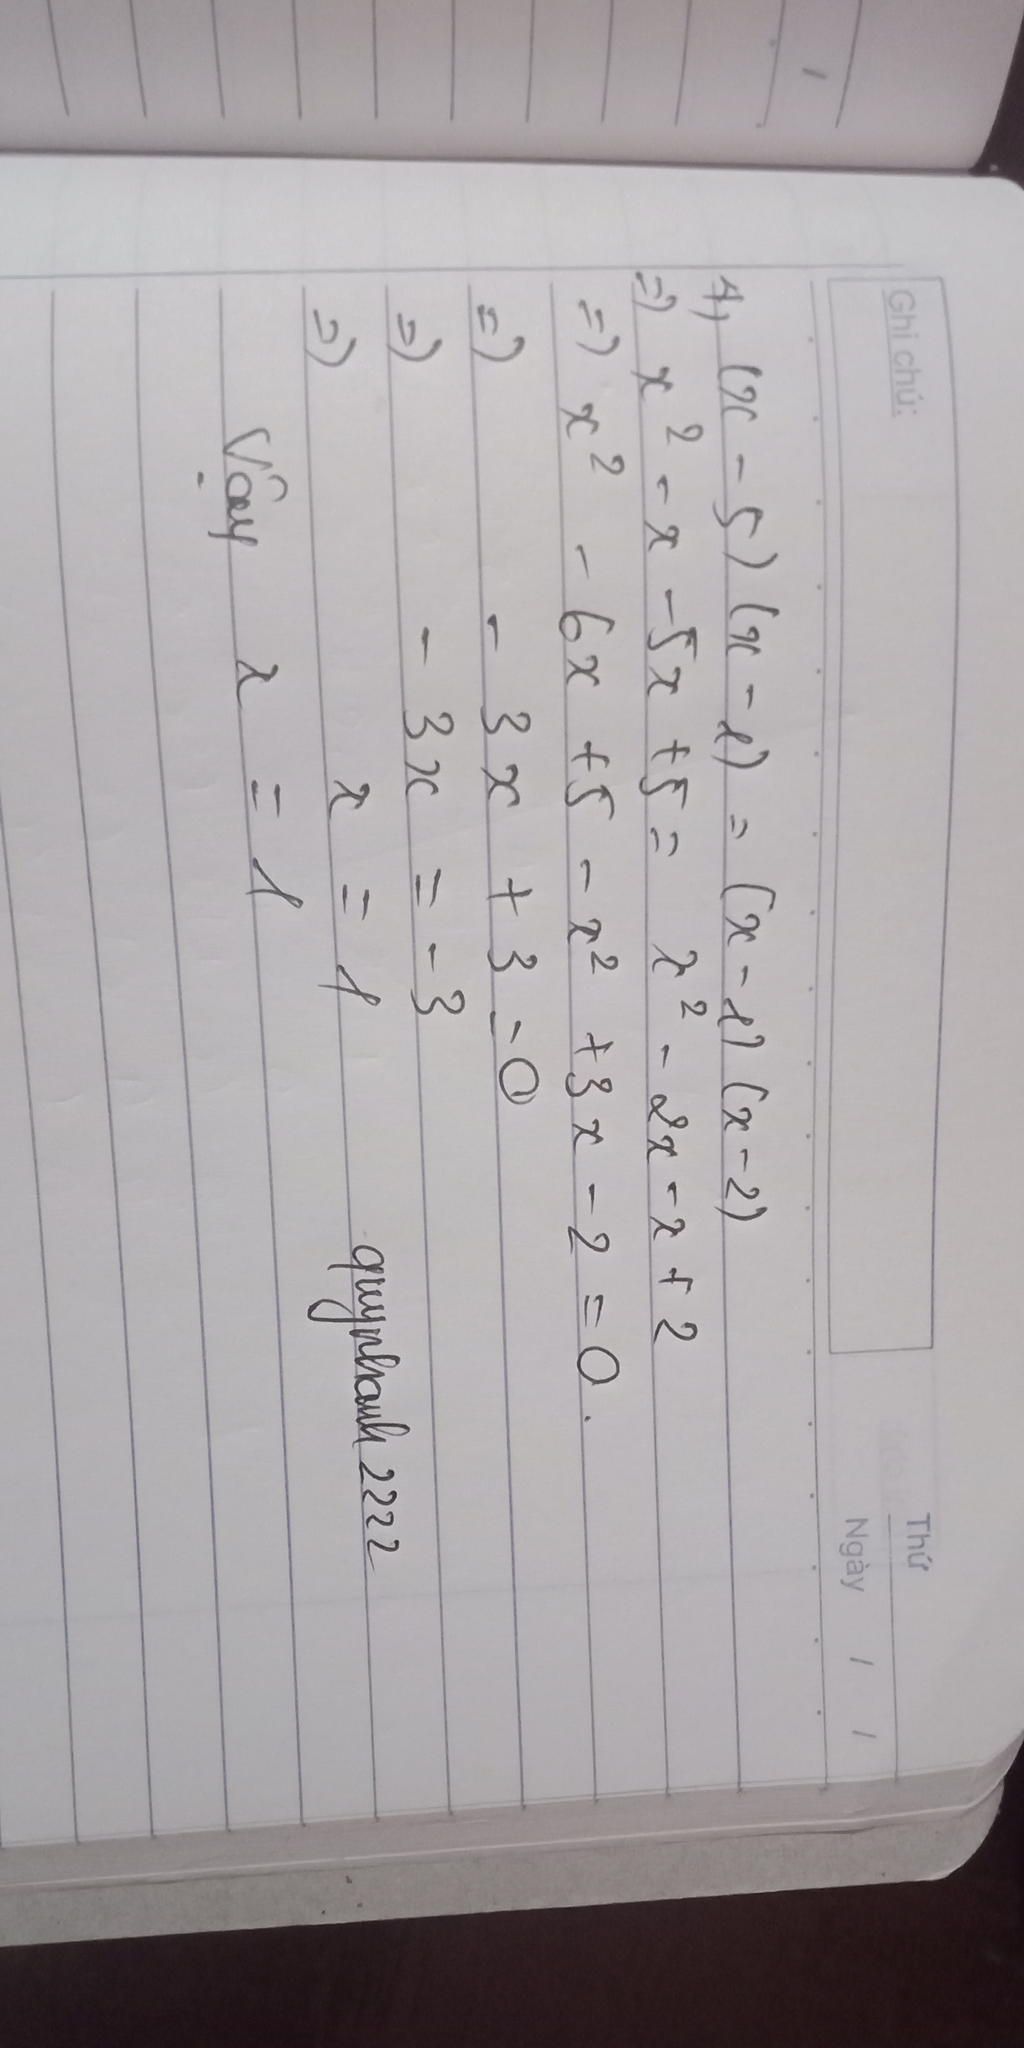 Ghi chú:
Thứ
Ngày / /
4, (x - 5) (x - 1) = (x - 1) (x - 2)
=) x² - x - 5x + 5 = x² - 2x - x + 2
=) x² - 6x + 5 - x² + 3x - 2 = 0.
=) - 3x + 3 = 0
=) - 3x = - 3
=) x = 1
quynhanh 2222
Vậy x = 1